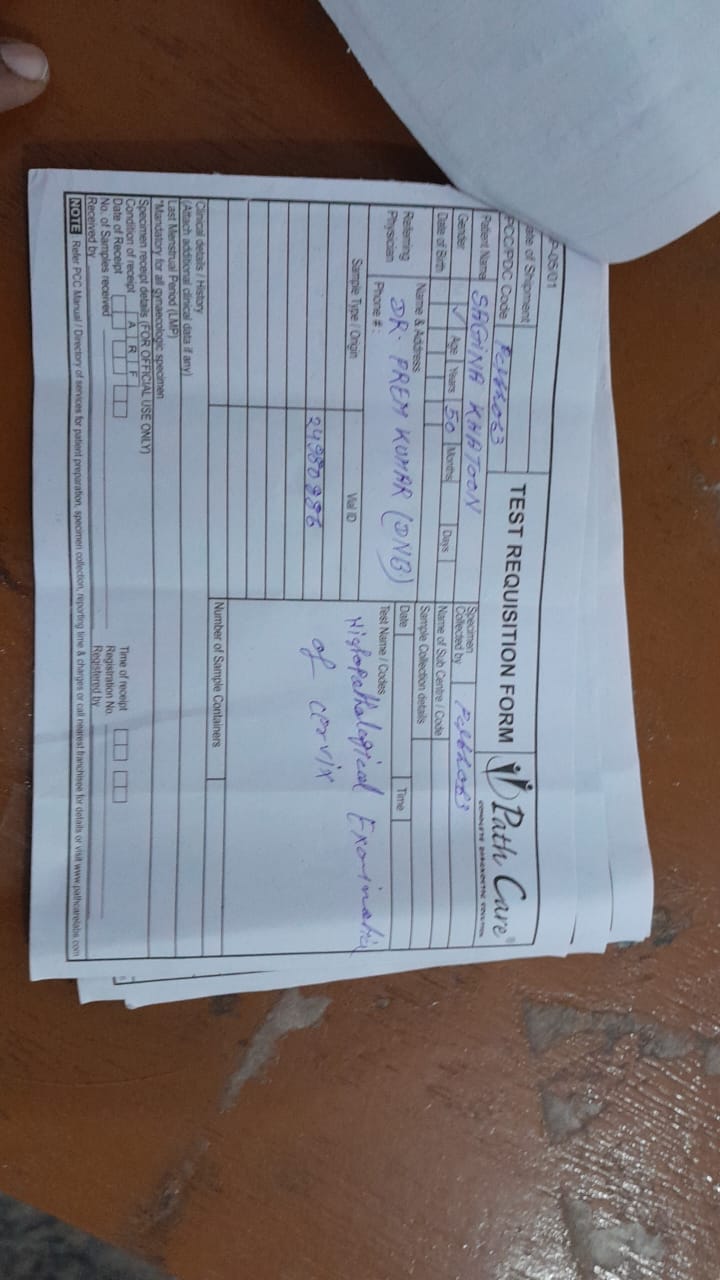 P-05/01
TEST REQUISITION FORM
Path Care
COMPLETE DIAGNOSTIC SOLUTION
ate of Shipment
PCC/PDC Code
Patient Name SAGINA KHATOON
Specimen Collected by
Gender Age Years 50 Months Days
Date of Birth
Name of Sub Centre / Code
Sample Collection details
Name & Address
Referring Physician DR. PREM KUMAR (DNB)
Date Time
Phone #:
Test Name / Codes
Sample Type / Origin Vial ID
Histopathological Examination
24980886
of cervix
Number of Sample Containers
Clinical details / History
(Attach additional clinical data if any)
Last Menstrual Period (LMP)
*Mandatory for all gynaecologic specimen
Specimen receipt details (FOR OFFICIAL USE ONLY)
Condition of receipt A R F
Date of Receipt Time of receipt
No. of Samples received Registration No.
Received by Registered by
NOTE Refer PCC Manual / Directory of services for patient preparation, specimen collection, reporting time & charges or call nearest franchisee for details or visit www.pathcarelabs.com